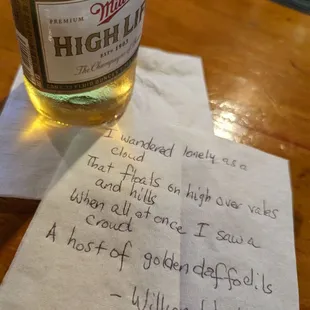 PREMIUM
Miller
HIGH LIFE
ESTD 1903
The Champagne of
I wandered lonely as a
cloud
That floats on high over vales
and hills
When all at once I saw a
crowd
A host of golden daffodils
-